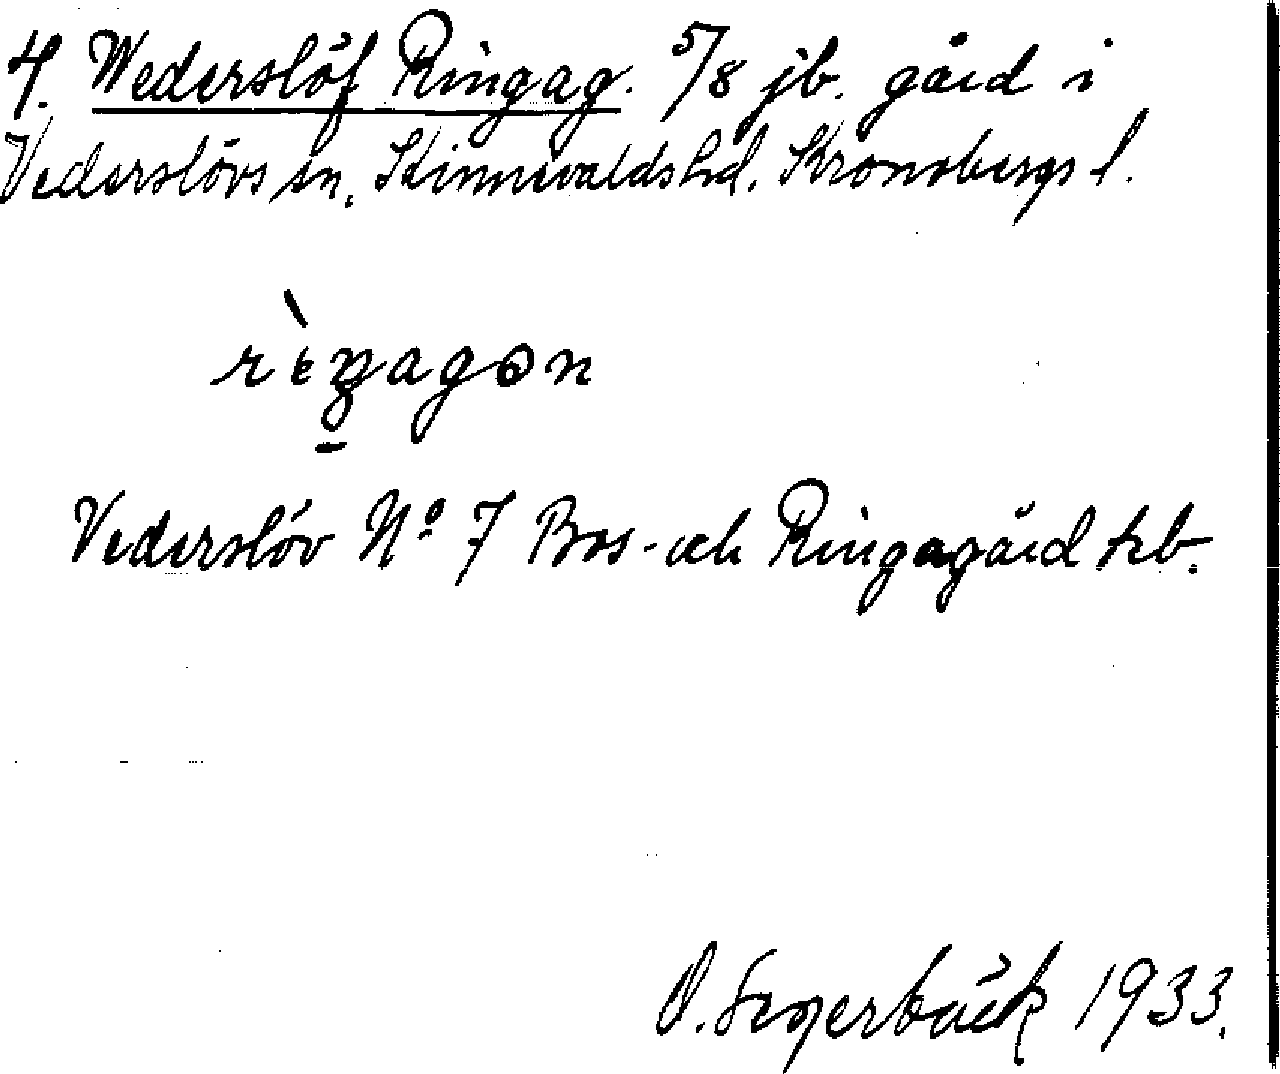 4. Wederslöf Ringag. 5/8 jb. gård i
Vederslövs sn, Kinnevalds hd. Kronobergs l.
rìŋagɔn
Vederslöv Nº 7 Bos- och Ringagård kb.
O. Segerbäck 1933.